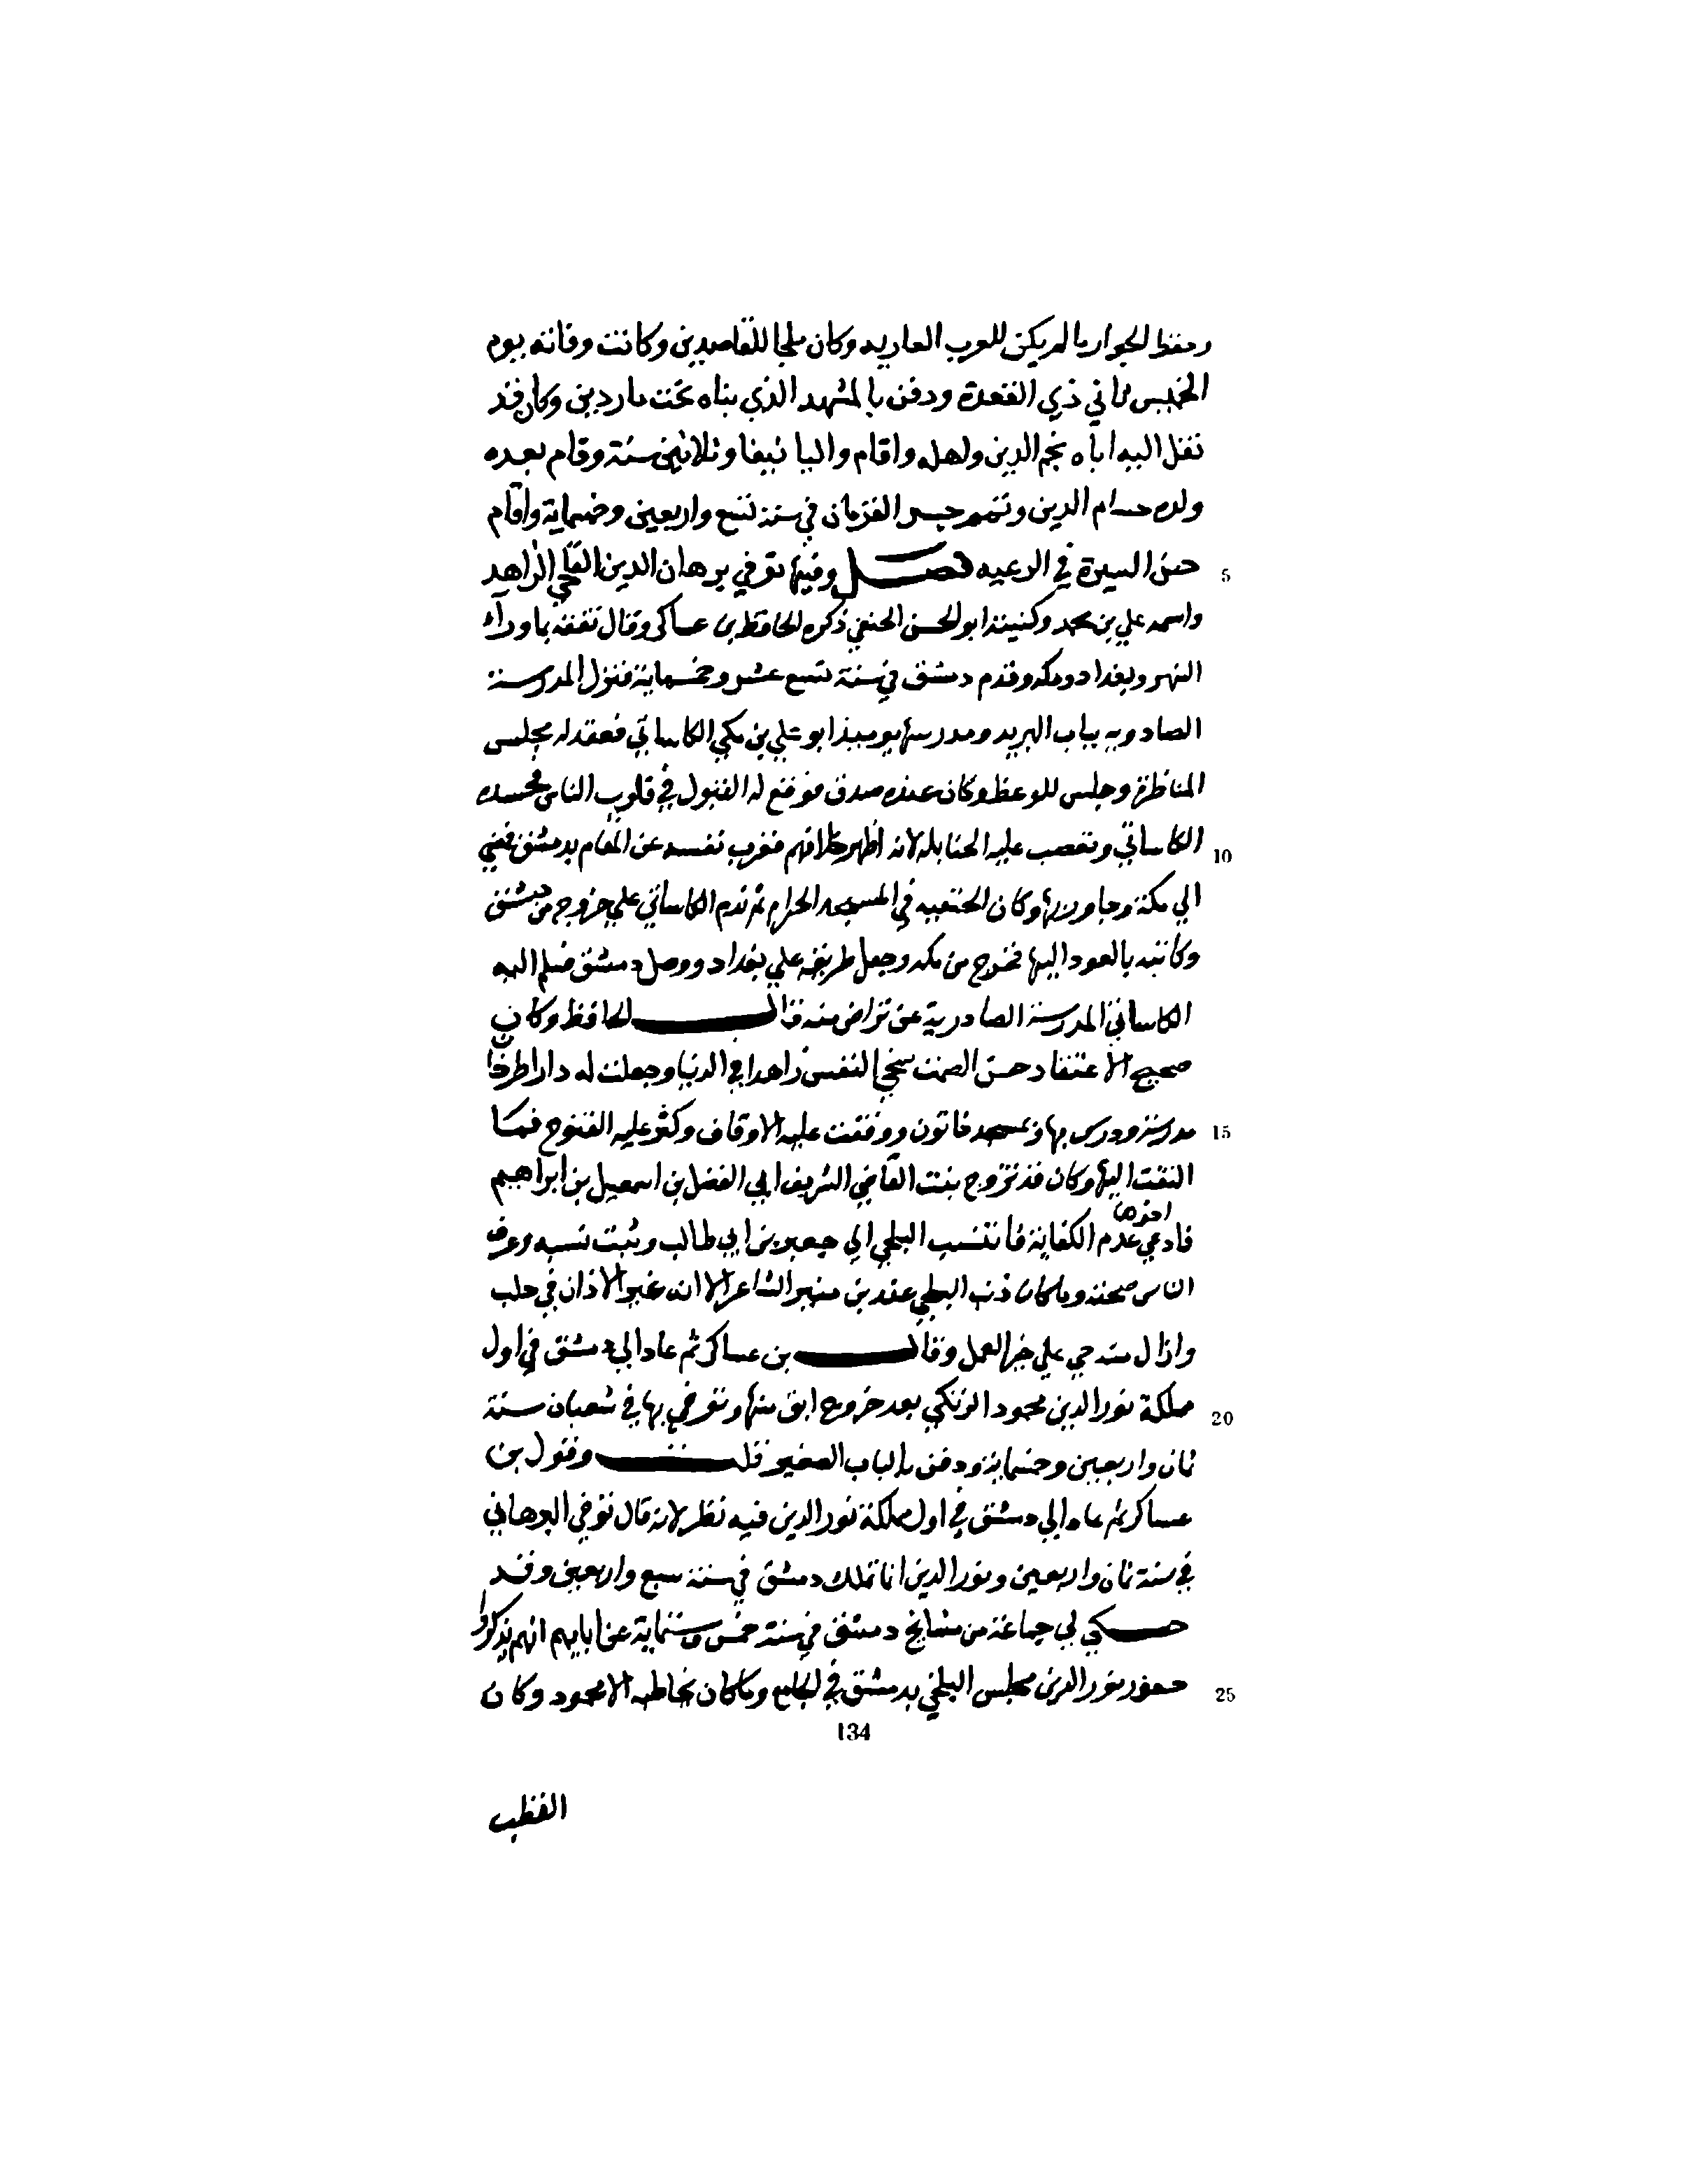 وحفظ الجوار ما لم يكن للعرب العاربه وكان ملجا للقاصدين وكانت وفاته يوم
الخميس ثاني ذي القعدة ودفن بالمشهد الذي بناه تحت ماردين وكان قد
نقل اليه اباه نجم الدين واهله واقام واليا نيفا وثلاثين سنة وقام بعده
ولده حسام الدين وتمم جسر القرمان في سنة تسع واربعين وخمسماية واقام
حسن السيرة في الرعيه فصل وفيها توفي برهان الدين البلخي الزاهد 5
واسمه علي بن محمد وكنيته ابو الحسن الحنفي ذكره الحافظ بن عساكر وقال تفقه بماوراء
النهر وبغداد ومكه وقدم دمشق في سنة تسع عشر وخمسماية فنزل المدرسة
الصادريه بباب البريد ومدرسها يوميذ ابو علي بن مكي الكاساني فعقد له مجلس
المناظرة وجلس للوعظ وكان عنده صدق فوقع له القبول في قلوب الناس فحسده
الكاساني وتعصب عليه الحنابله لانه اظهر خلافهم فغرب نفسه عن المقام بدمشق فمضي 10
الي مكة وجاور بها وكان للحنفيه في المسجد الحرام ثم ندم الكاساني علي خروجه من دمشق
وكاتبه بالعود اليها فخرج من مكه وجعل طريقه علي بغداد ووصل دمشق فسلم اليه
الكاساني المدرسة الصادرية عن تراض منه قال الحافظ وكان
صحيح الاعتقاد حسن الصمت سخي النفس زاهدا في الدنيا وجعلت له دار طرخان
مدرسة ودرس بها وبمسجد خاتون ووقفت عليه الاوقاف وكثر عليه الفتوح فما 15
التفت اليها وكان قد تزوج بنت القاضي الشريف ابي الفضل بن اسمعيل بن ابراهيم
اخوها
فادعي عدم الكفاية فانتسب البلخي الي جعفر بن ابي طالب وثبت نسبه وعرف
الناس صحته وما كان ذنب البلخي عند بن منير الشاعر الا انه غير الاذان في حلب
وازال منه حي علي خير العمل وقال بن عساكر ثم عاد الي دمشق في اول
مملكة نور الدين محمود الزنكي بعد خروج ابق منها وتوفي بها في شعبان سنة 20
ثمان واربعين وخمسماية ودفن بالباب الصغير قلت وقول بن
عساكر ثم عاد الي دمشق في اول مملكة نور الدين فيه نظر لانه قال توفي البرهاني
في سنة ثمان واربعين ونور الدين انما ملك دمشق في سنة سبع واربعين وقد
حكي لي جماعة من مشايخ دمشق في سنة خمس وستماية عن ابايهم انهم يذكروا
حضور نور الدين مجلس البلخي بدمشق في الجامع وما كان يخاطبه الا محمود وكان 25
134
القطب